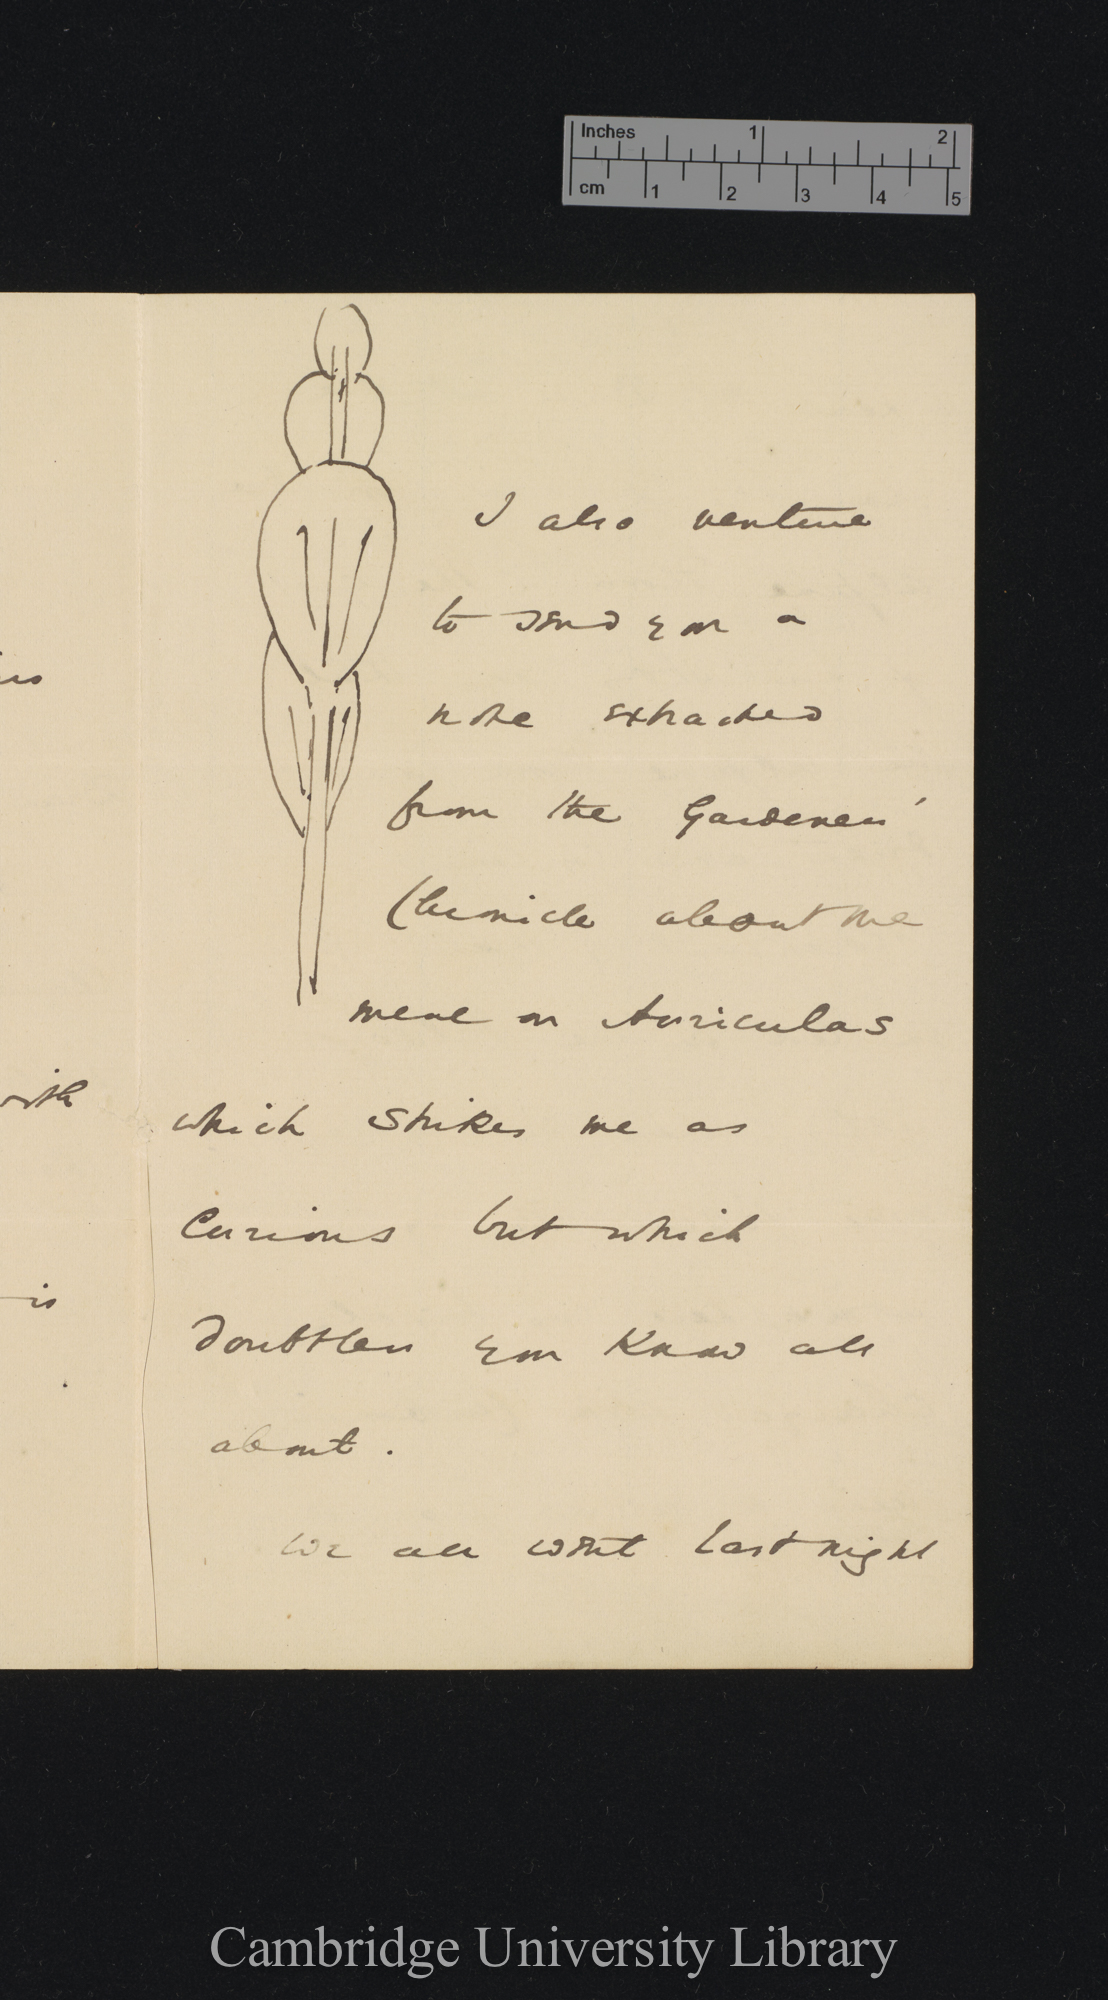 Inches 1 2
cm 1 2 3 4 5
I also venture
to send you a
note extracted
from the Gardeners'
Chronicle about the
meal on Auriculas
which strikes me as
curious but which
doubtless you know all
about.
We all went last night
with
is
Cambridge University Library